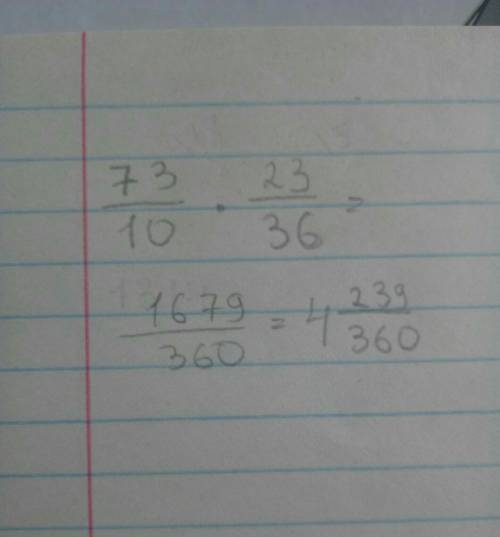 73/10 · 23/36 =
1679/360 = 4 239/360